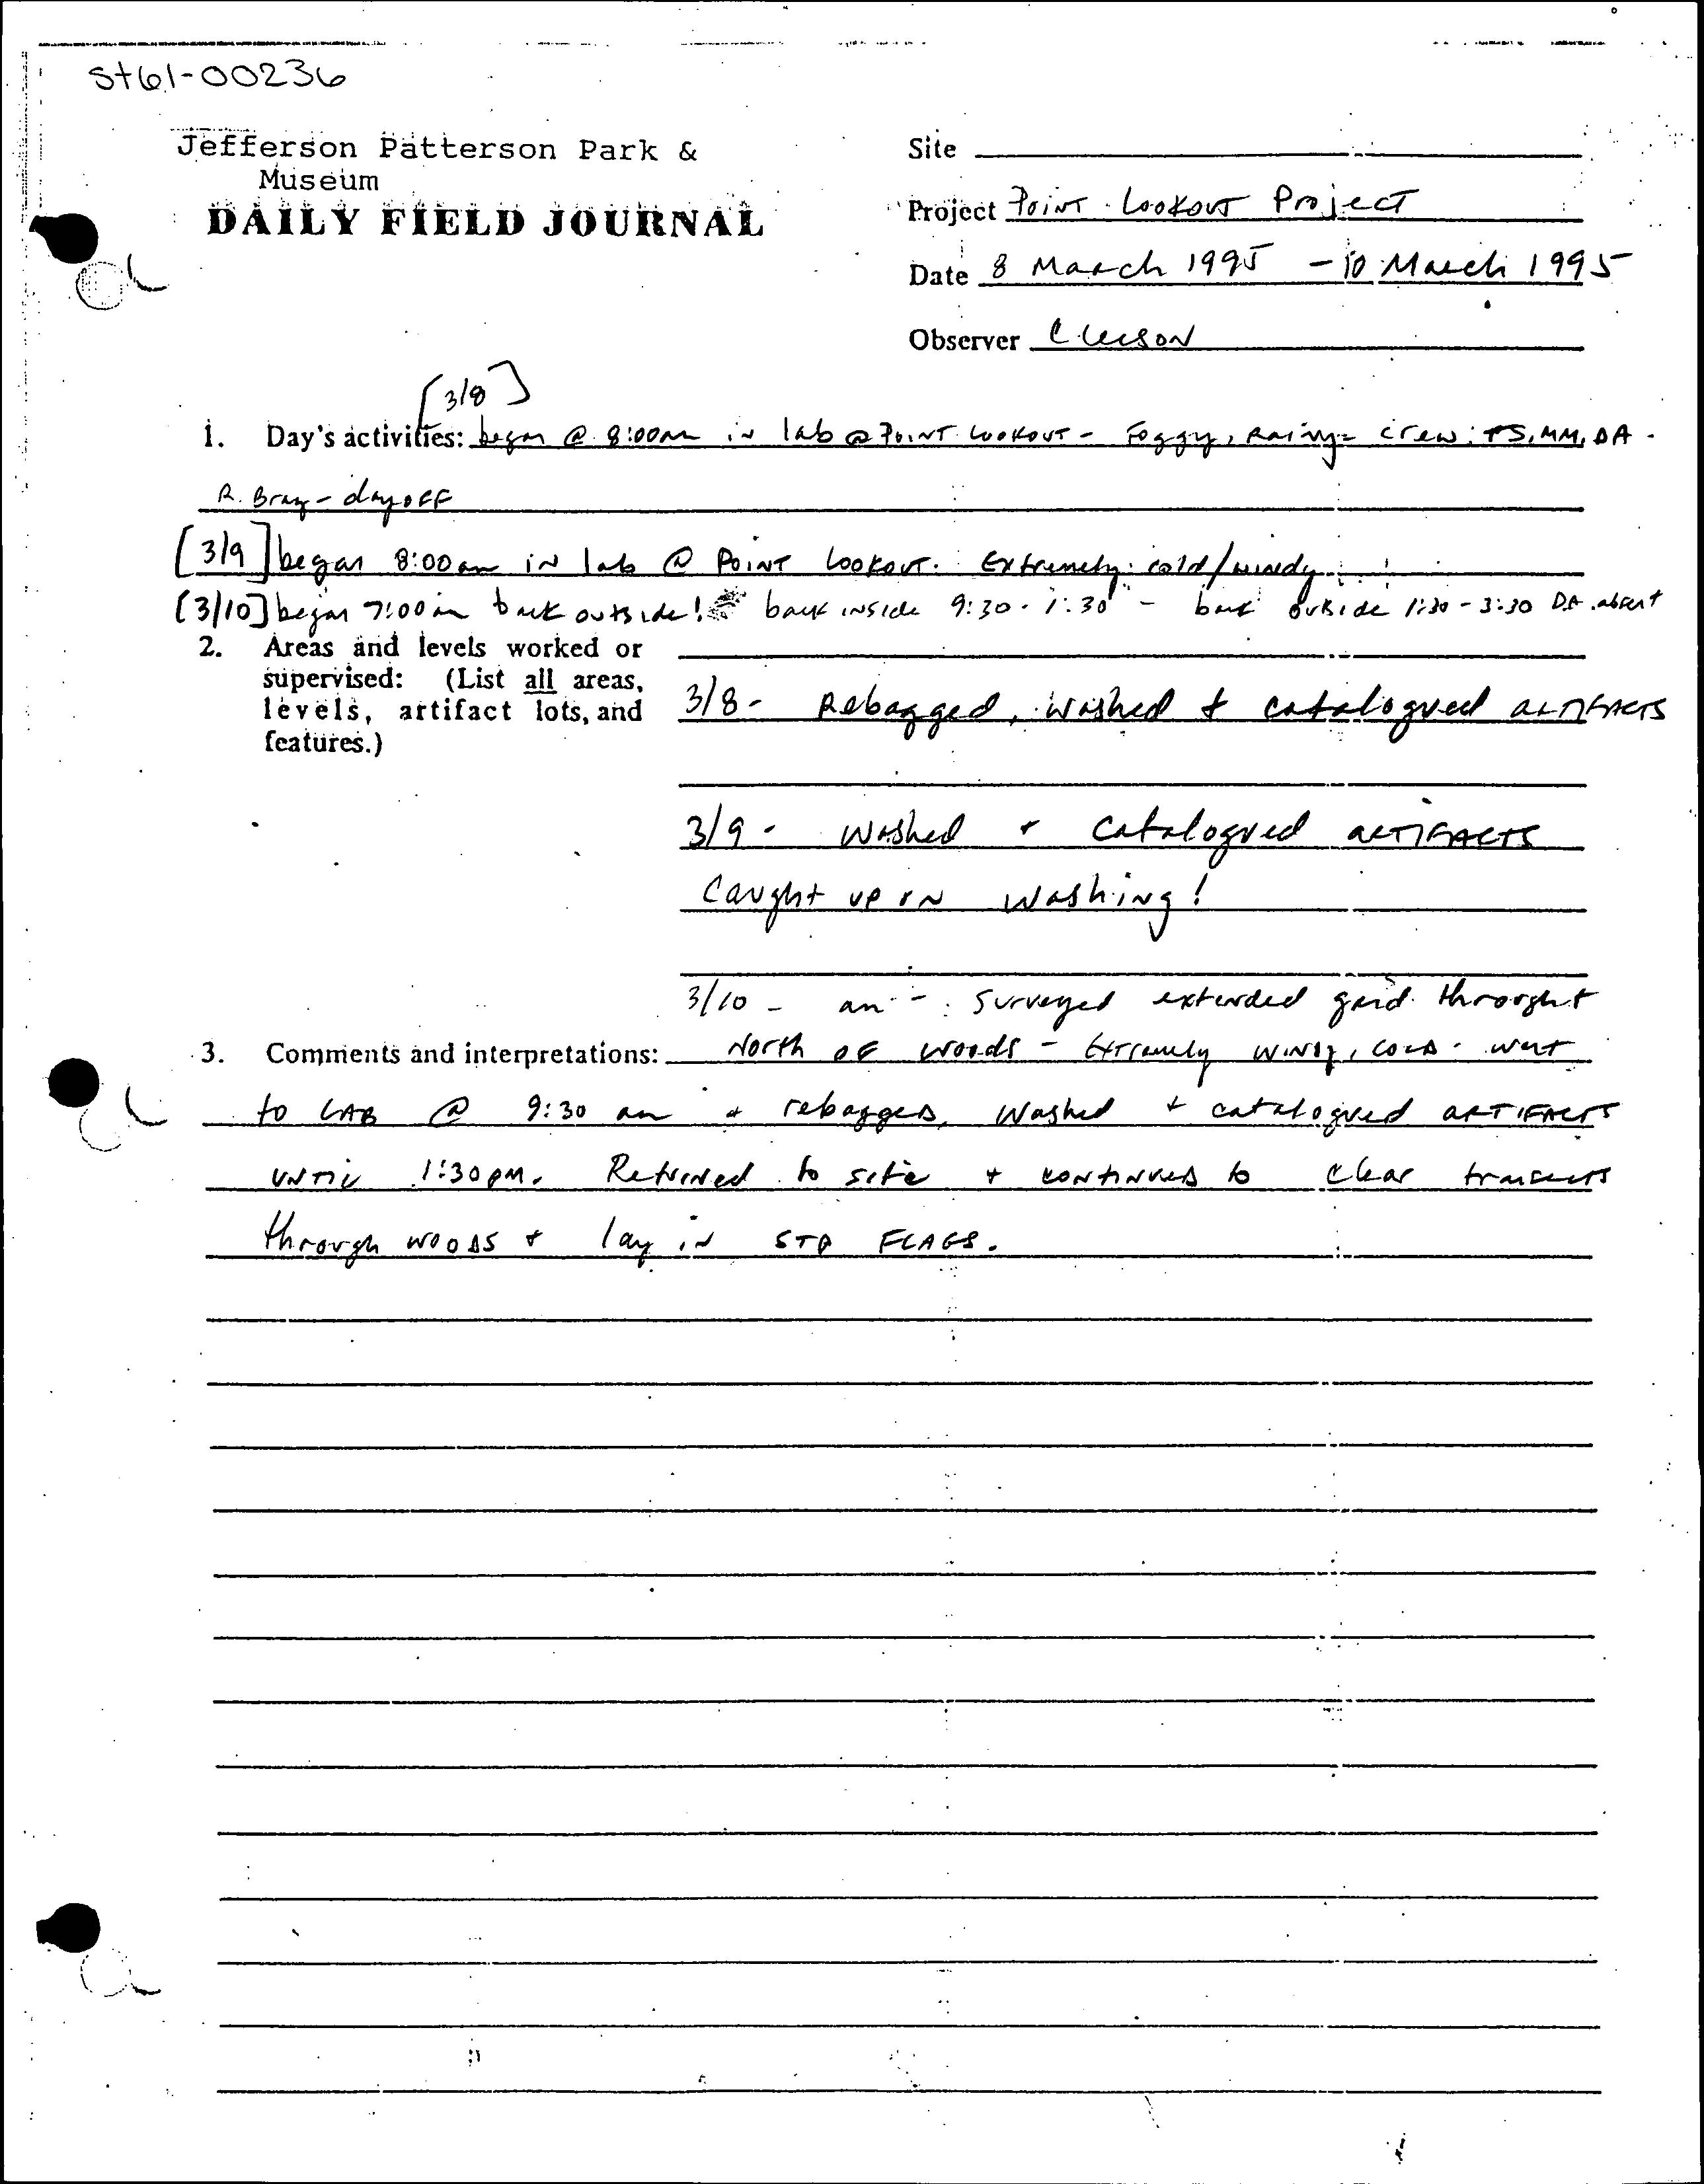 St61-00236
Jefferson Patterson Park &
Museum
DAILY FIELD JOURNAL
Site
Project Point Lookout Project
Date 8 March 1995 - 10 March 1995
Observer C
[3/8]
1. Day's activities: began @ 8:00am in lab @ Point Lookout - Foggy, Rainy - crew: TS, MM, DA -
R. Bray - day off
[3/9] began 8:00am in lab @ Point Lookout. Extremely cold/windy
[3/10] began 7:00am back outside! back inside 9:30 - 1:30 - back outside 1:30 - 3:30 DA absent
2. Areas and levels worked or
supervised: (List all areas,
levels, artifact lots, and
features.)
3/8 - Rebagged, washed + catalogued artifacts
3/9 - Washed + catalogued artifacts
Caught up on washing!
3/10 - am - Surveyed extended grid throught
3. Comments and interpretations: North of woods - Extremely windy, cold - went
to LAB @ 9:30 am + rebagged, washed + catalogued artifacts
until 1:30pm. Returned to site + continued to clear transects
through woods + lay in STP FLAGS.